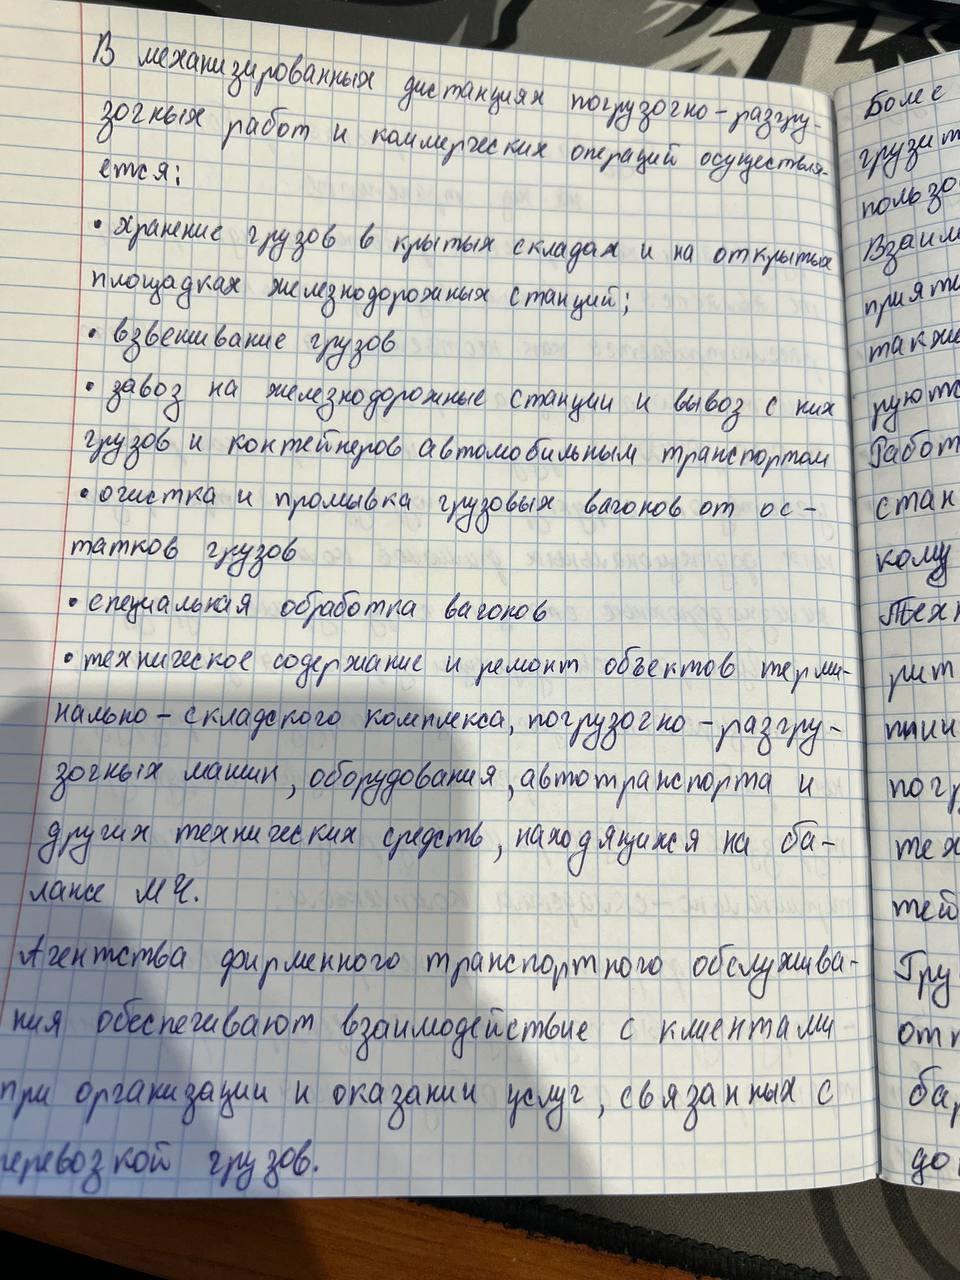 В механизированных дистанциях погрузочно-разгру-
зочных работ и коммерческих операций осуществля-
ется:
• хранение грузов в крытых складах и на открытых
площадках железнодорожных станций;
• взвешивание грузов
• завоз на железнодорожные станции и вывоз с них
грузов и контейнеров автомобильным транспортом
• очистка и промывка грузовых вагонов от ос-
татков грузов
• специальная обработка вагонов
• техническое содержание и ремонт объектов терми-
нально-складского комплекса, погрузочно-разгру-
зочных машин, оборудования, автотранспорта и
других технических средств, находящихся на ба-
лансе МЧ.
Агентства фирменного транспортного обслужива-
ния обеспечивают взаимодействие с клиентами
при организации и оказании услуг, связанных с
перевозкой грузов.
Более
грузит
пользо
Взаим
прияти
также
руютс
Работ
стан
кому
Техн
рит
пции
погр
тех
тей
Гру
отп
бар
до